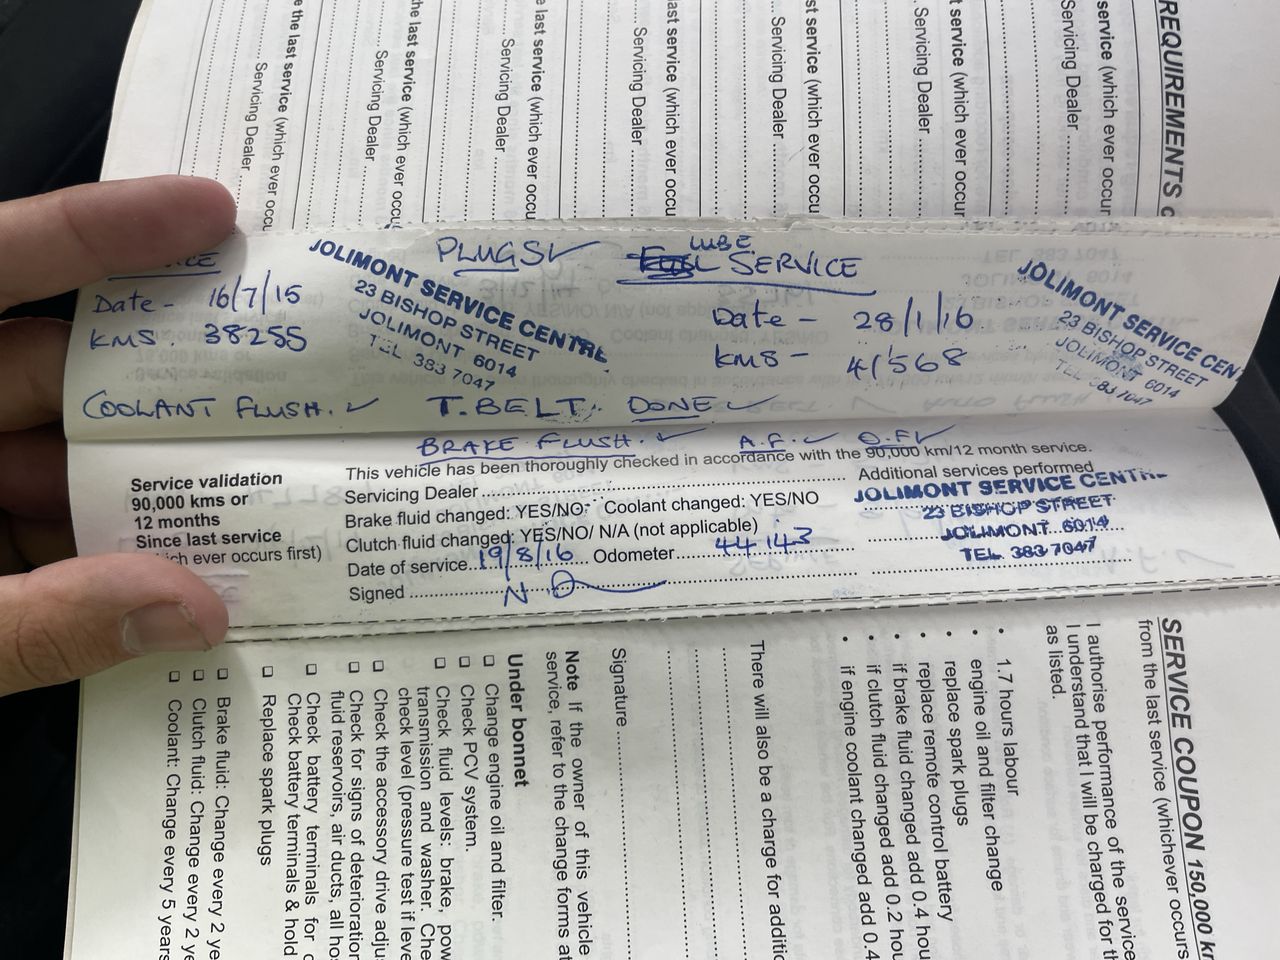 REQUIREMENTS
service (which ever occurs
Servicing Dealer
t service (which ever occur
Servicing Dealer
st service (which ever occu
Servicing Dealer
last service (which ever occu
Servicing Dealer
e last service (which ever occu
Servicing Dealer
the last service (which ever occu
Servicing Dealer
e the last service (which ever occu
Servicing Dealer
PLUGS ✓
Date - 16/7/15
KMS 38255
JOLIMONT SERVICE CENTRE
23 BISHOP STREET
JOLIMONT 6014
TEL 383 7047
COOLANT FLUSH. ✓ T. BELT. DONE ✓
LUBE
SERVICE
Date - 28/1/16
KMS - 41568
JOLIMONT SERVICE CENT
23 BISHOP STREET
JOLIMONT 6014
TEL 383 7047
BRAKE FLUSH. ✓ A.F. ✓ O.F ✓
Service validation
90,000 kms or
12 months
Since last service
ich ever occurs first)
This vehicle has been thoroughly checked in accordance with the 90,000 km/12 month service.
Servicing Dealer
Brake fluid changed: YES/NO: Coolant changed: YES/NO
Clutch fluid changed: YES/NO/ N/A (not applicable)
Date of service 19/8/16 Odometer 44143
Signed
Additional services performed
JOLIMONT SERVICE CENTRE
23 BISHOP STREET
JOLIMONT 6014
TEL 383 7047
SERVICE COUPON 150,000 k
from the last service (whichever occurs
I authorise performance of the service
I understand that I will be charged for th
as listed.
• 1.7 hours labour
• engine oil and filter change
• replace spark plugs
• replace remote control battery
• if brake fluid changed add 0.4 hou
• if clutch fluid changed add 0.2 hou
• if engine coolant changed add 0.4
There will also be a charge for additi
Signature
Note If the owner of this vehicle
service, refer to the change forms at
Under bonnet
❑ Change engine oil and filter.
❑ Check PCV system.
❑ Check fluid levels: brake, pow
transmission and washer. Che
check level (pressure test if leve
❑ Check the accessory drive adju
❑ Check for signs of deterioration
fluid reservoirs, air ducts, all ho
❑ Check battery terminals for c
Check battery terminals & hold
❑ Replace spark plugs
❑ Brake fluid: Change every 2 ye
❑ Clutch fluid: Change every 2 ye
❑ Coolant: Change every 5 years